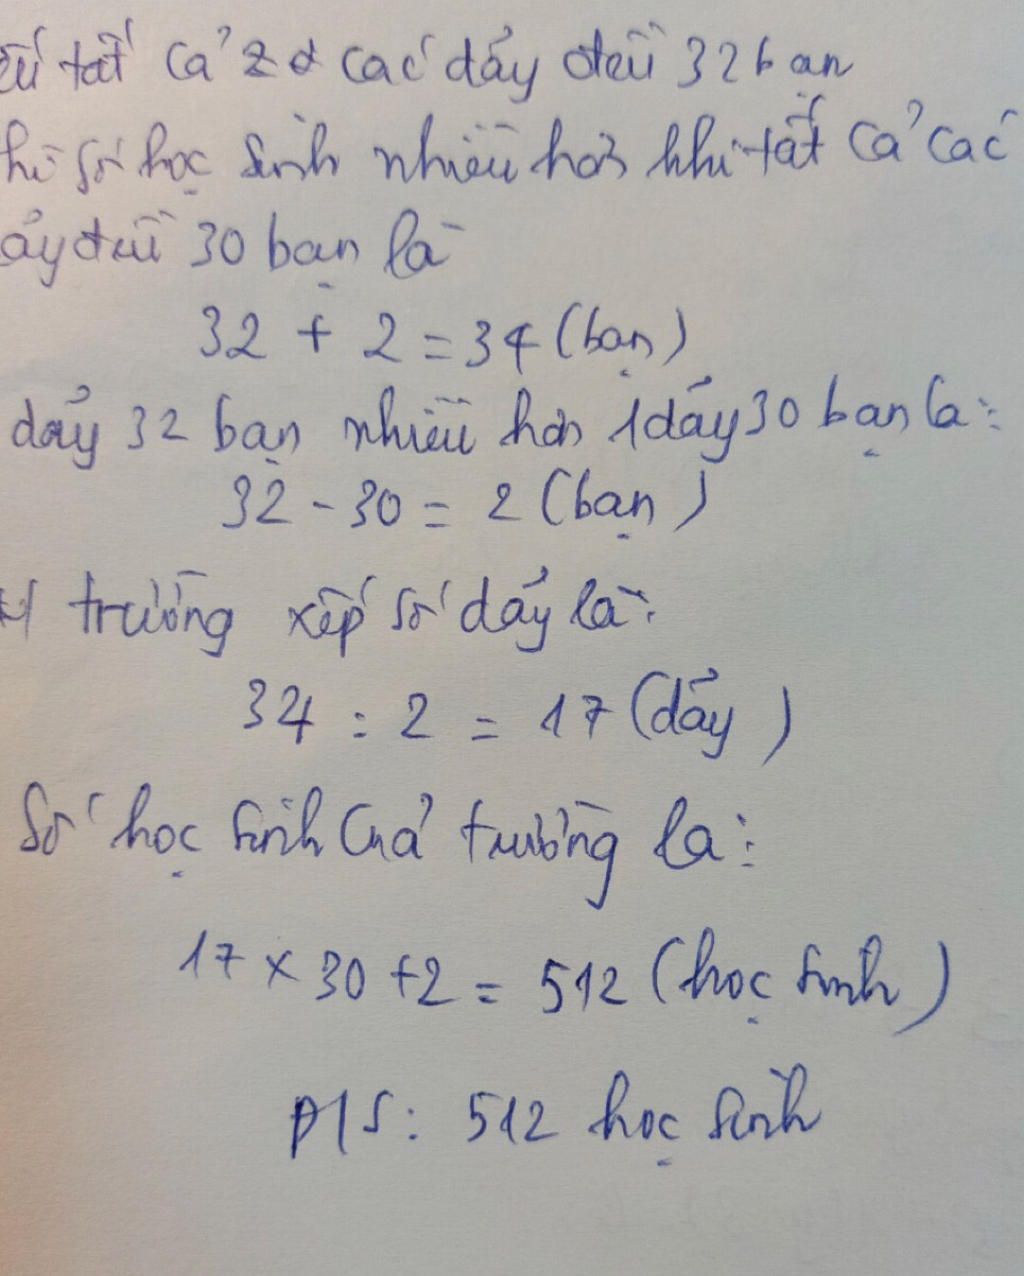 tất cả ở các dãy đều 32 bạn
số học sinh nhiều hơn khi tất cả các
đều 30 bạn là
32 + 2 = 34 (bạn)
dãy 32 bạn nhiều hơn 1 dãy 30 bạn là:
32 - 30 = 2 (bạn)
trường xếp số dãy là:
34 : 2 = 17 (dãy)
Số học sinh của trường là:
17 x 30 + 2 = 512 (học sinh)
Đ/S: 512 học sinh